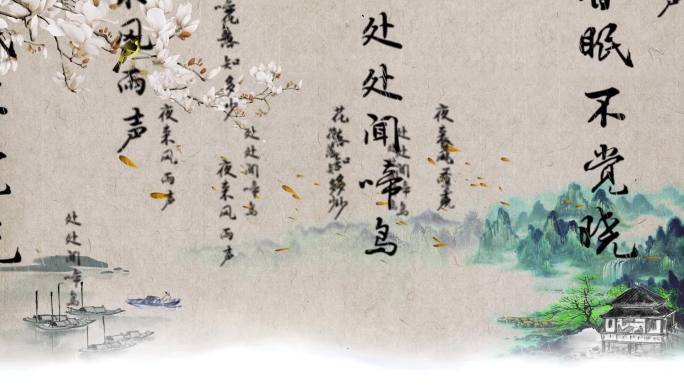 春眠不觉晓
夜来风雨声
处处闻啼鸟
处处闻啼鸟
花落知多少
处处闻啼鸟
花落知多少
夜来风雨声
夜来风雨声
来风雨声
处处闻啼鸟